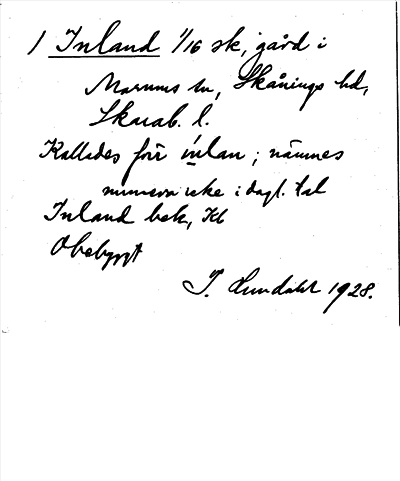 1 Inland 1/16 sk, gård i
Marums sn, Skånings hd,
Skarab. l.
Kallades förr inlan ; nämnes
numera icke i dagl. tal
Inland bek, Kb
Obebyggt
I. Lundahl 1928.